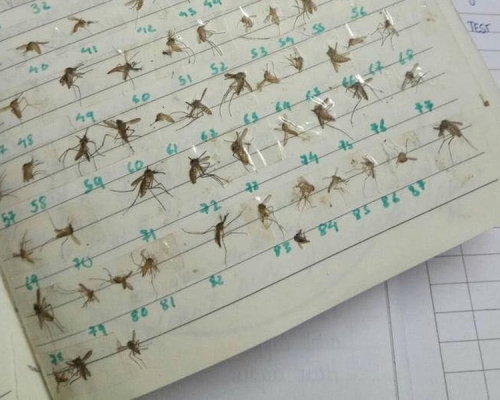 32
40 41 42 43 44
48 49 50 51 52 53 54 55 56
57 58 59 60 61 62 63 64 65 66 67 68
69 70 71 72 73 74 75 76 77
78 79 80 81 82 83 84 85 86 87
TEST